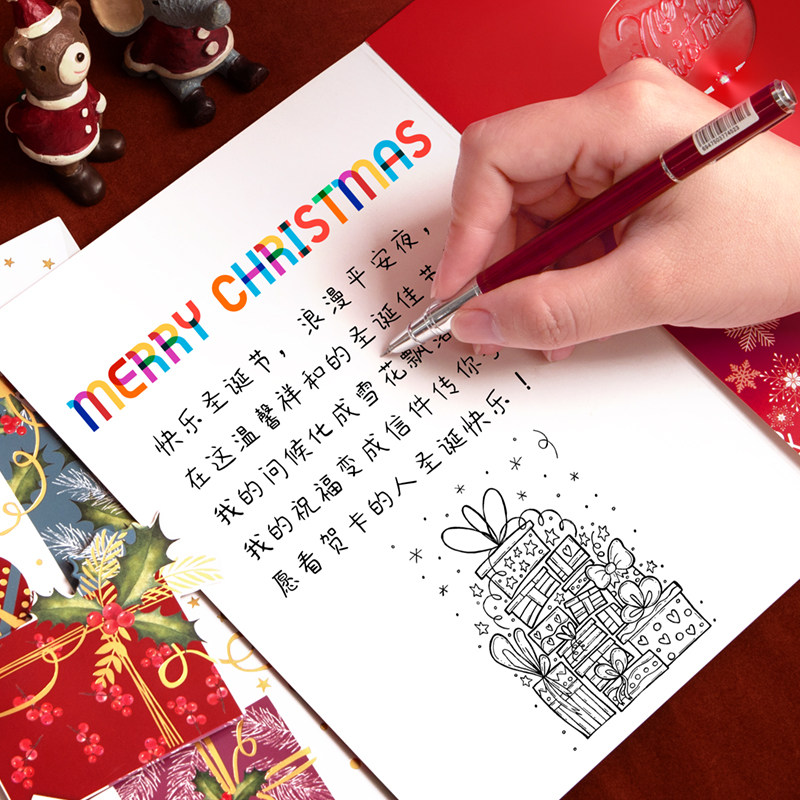 MERRY CHRISTMAS
快乐圣诞节，浪漫平安夜，
在这温馨祥和的圣诞佳节
我的问候化成雪花飘落
我的祝福变成信件传你
愿看贺卡的人圣诞快乐！
Merry Christmas